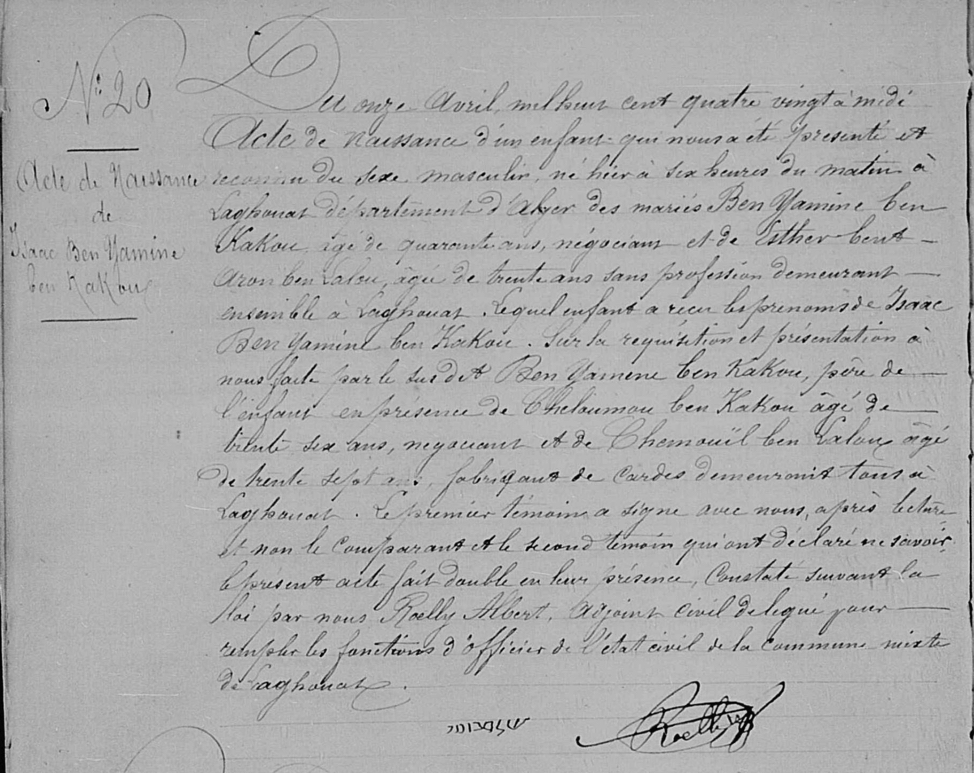 N° 20
Acte de Naissance
de
Isaac Ben Yamine
ben Kakou
Du onze Avril mil huit cent quatre vingt à midi
Acte de Naissance d'un enfant qui nous a été présenté et
reconnu du sexe masculin, né hier à six heures du matin à
Laghouat département d'Alger des mariés Ben Yamine ben
Kakou, âgé de quarante ans, négociant et de Esther bent
Aron ben Lalou, âgée de trente ans sans profession demeurant
ensemble à Laghouat. Lequel enfant a reçu les prénoms de Isaac
Ben Yamine ben Kakou. Sur la requisition et présentation à
nous faite par le susdit Ben Yamine ben Kakou, père de
l'enfant en présence de Cheloumou ben Kakou âgé de
trente six ans, négociant et de Chemouïl ben Lalou âgé
de trente sept ans, fabriquant de cardes demeurant tous à
Laghouat. Le premier témoin a signé avec nous, après lecture
et non le comparant et le second témoin qui ont déclaré ne savoir,
le présent acte fait double en leur présence, Constaté suivant la
loi par nous Roelly Albert, adjoint civil delegué pour
remplir les fonctions d'officier de l'état civil de la commune mixte
de Laghouat.
Roelly